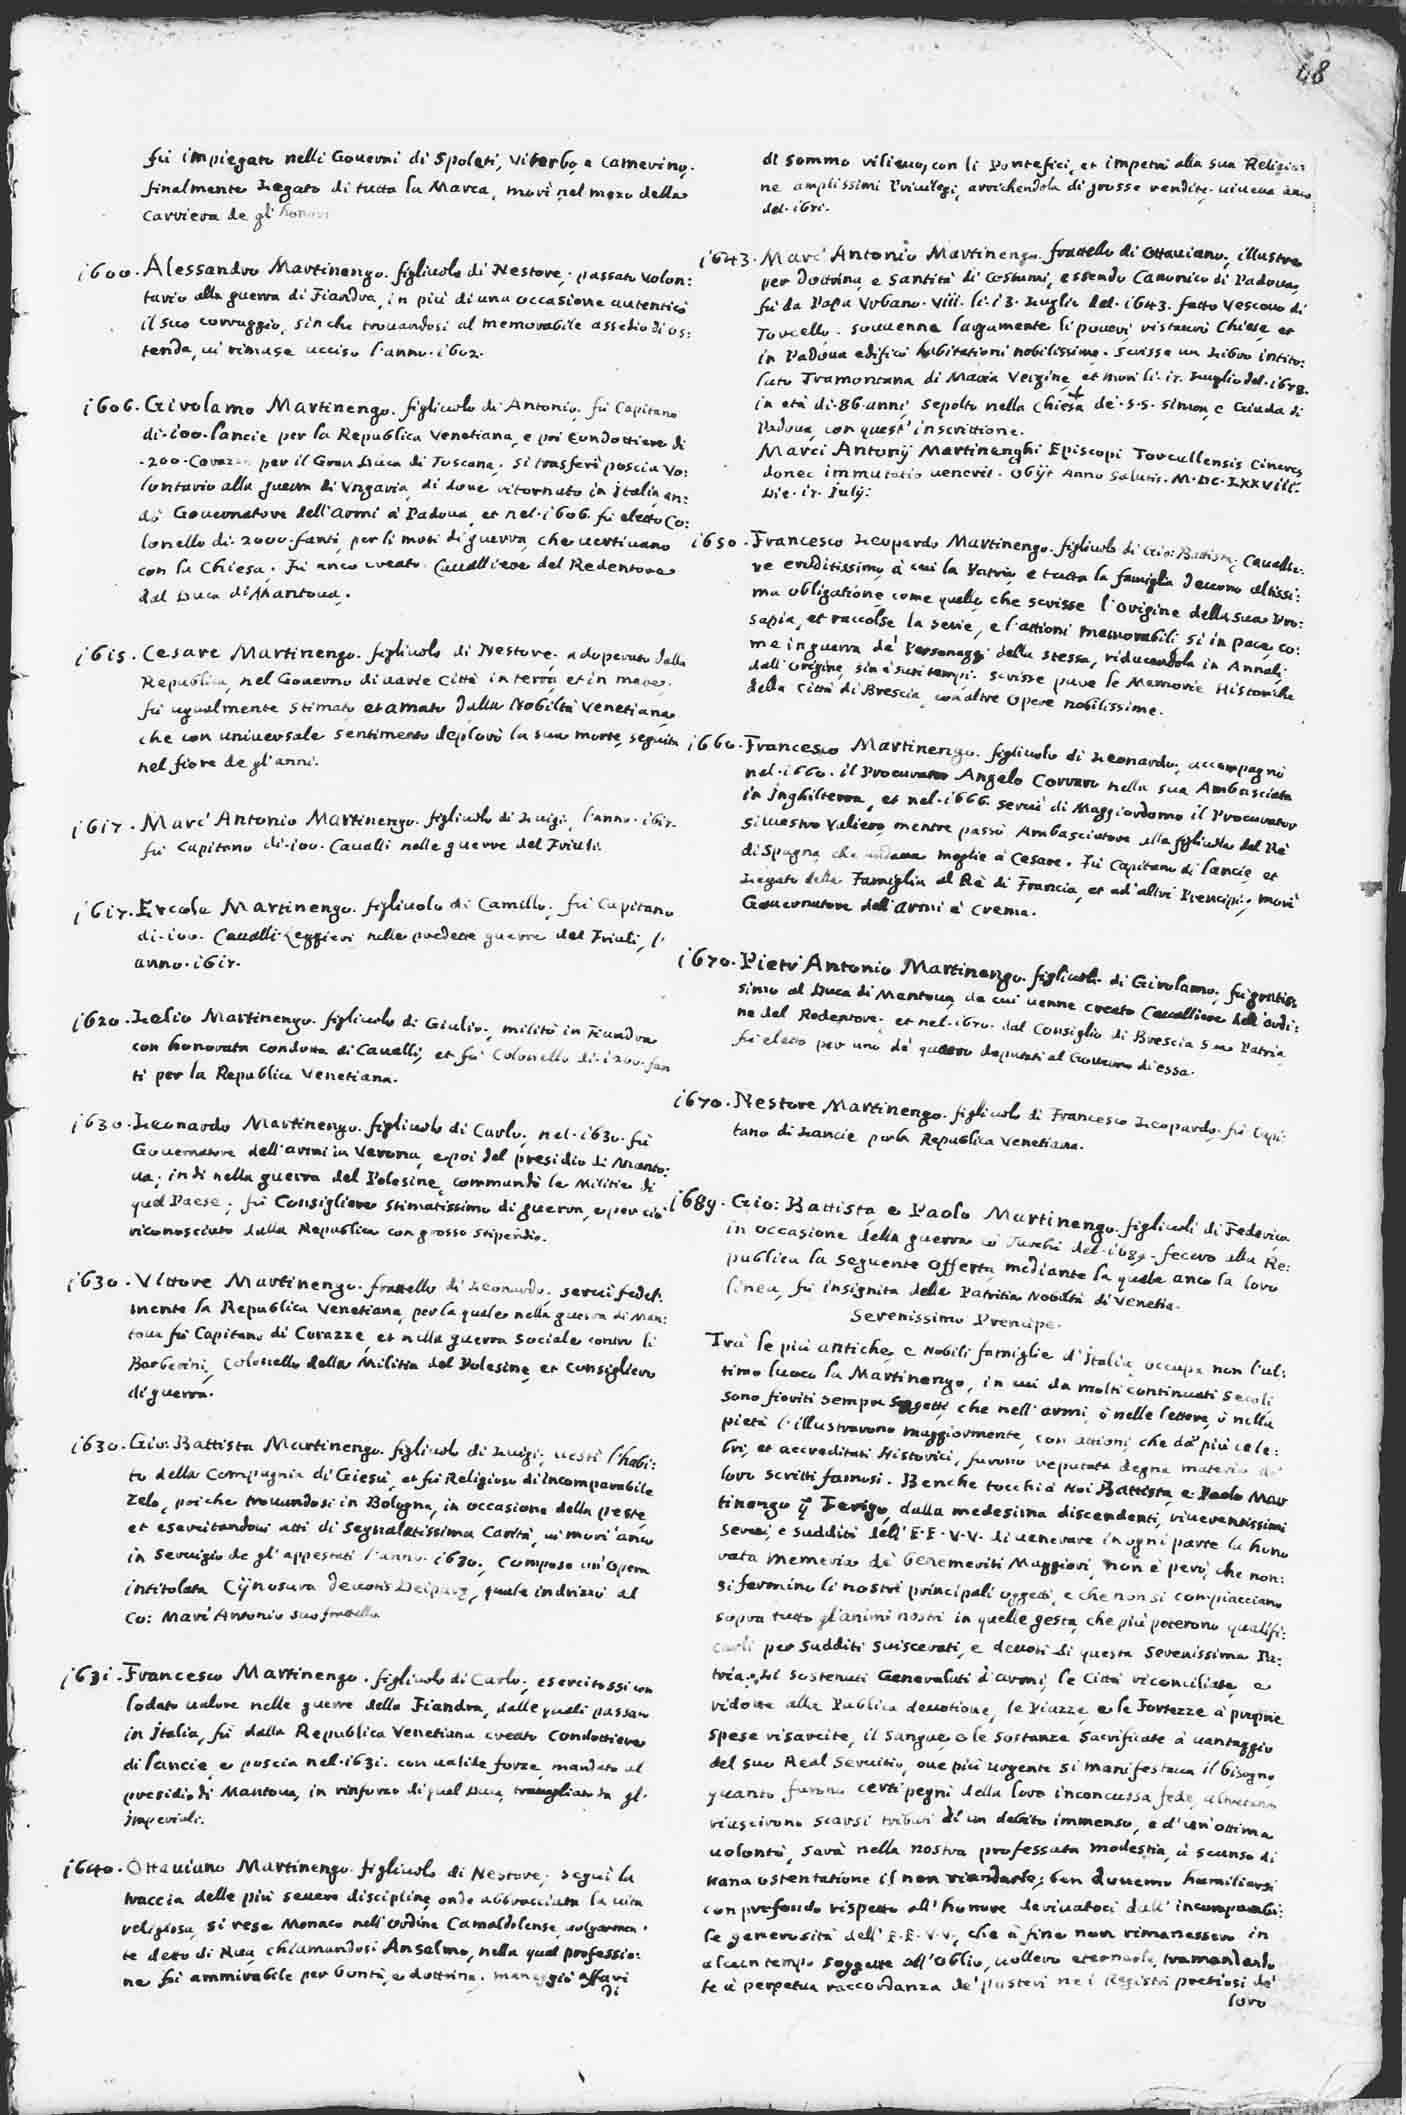 48
fù impiegato nelli Gouerni di Spoleti, Viterbo, e Camerino,
finalmente Legato di tutta la Marca, morì nel mezo della
Carriera de gl' honori
1600. Alessandro Martinengo. figliuolo di Nestore, passato Volon:
tario alla guerra di Fiandra, in più di una occasione autenticò
il suo corraggio, sin che trouandosi al memorabile assedio di Os:
tenda, ui rimase ucciso l'anno. 1602.
1606. Girolamo Martinengo. figliuolo di Antonio, fù Capitano
di. 100. lancie per la Republica Venetiana, e poi Condottiere di
.200. Corazze per il Gran Duca di Toscana. Si trasferì poscia Vo:
lontario alla guerra di Vngaria, di doue ritornato in Italia, an:
dò Gouernatore dell'armi à Padoua, et nel. 1606. fù eletto Co:
lonello di. 2000. fanti, per li moti di guerra, che uertiuano
con la Chiesa. Fù anco creato Cauall iere del Redentore
dal Duca di Mantoua.
1615. Cesare Martinengo. figliuolo di Nestore. adoperato dalla
Republica, nel Gouerno di uarie Città in terra, et in mare.
fù ugualmente stimato, et amato dalla Nobiltà Venetiana,
che con uniuersale sentimento deplorò la sua morte, seguita
nel fiore de gl'anni.
1617. Marc' Antonio Martinengo. figliuolo di Luigi, l'anno. 1617.
fù Capitano di. 100. Caualli nelle guerre del Friuli.
1617. Ercole Martinengo. figliuolo di Camillo, fù Capitano
di. 100. Caualli Leggieri nelle predette guerre del Friuli, l'
anno. 1617.
1620. Lelio Martinengo. figliuolo di Giulio, militò in Fiandra
con honorata condotta di Caualli, et fù Colonello di. 1200. fan
ti per la Republica Venetiana.
1630. Leonardo Martinengo. figliuolo di Carlo, nel. 1630. fù
Gouernatore dell'armi in Verona, e poi del presidio di Manto:
ua, indi nella guerra del Polesine, commandò le Militie di
quel Paese; fù Consigliere stimatissimo di guerra, e per ciò
riconosciuto dalla Republica con grosso stipendio.
1630. Vittore Martinengo. fratello di Leonardo, seruì fedel:
mente la Republica Venetiana, per la quale nella guerra di Man:
toua fù Capitano di Corazze, et nella guerra sociale contro li
Barberini, Colonello della Militia del Polesine, et Consigliero
di guerra.
1630. Gio: Battista Martinengo. figliuolo di Luigi, uestì l'habi:
to della Compagnia di Giesù, et fù Religioso di incomparabile
Zelo, poiche trouandosi in Bologna, in occasione della peste,
et esercitandoui atti di segnalatissima Carità, ui morì anco
in seruigio de gl'appestati l'anno. 1630. Compose un'Opera
intitolata Cynosura deuotis Deiparæ, quale indrizzò al
Co: Marc' Antonio suo fratello
1631. Francesco Martinengo. figliuolo di Carlo, esercitossi con
lodato ualore nelle guerre della Fiandra, dalle quali passato
in Italia, fù dalla Republica Venetiana creato Condottiere
di lancie, e poscia nel. 1631. con ualide forze, mandato al
presidio di Mantoua, in rinforzo di quel Duca, trauagliato da gl'
Imperiali.
1640. Ottauiano Martinengo. figliuolo di Nestore, seguì la
traccia delle più seuere discipline, onde abbracciata la uita
religiosa, si rese Monaco nell'ordine Camaldolense, uolgarmen:
te detto di Rua, chiamandosi Anselmo, nella qual professio:
ne fù ammirabile per bontà, e dottrina. maneggiò affari
di
di sommo rilieuo, con li Pontefici, et impetrò alla sua Religio:
ne amplissimi Priuilegi, arrichendola di grosse rendite. uiueua anco
del. 1671.
1643. Marc' Antonio Martinengo. fratello di Ottauiano, illustre
per dottrina, e santità di Costumi, essendo Canonico di Padoua,
fù da Papa Vrbano. VIII. li. 13. Luglio del. 1643. fatto Vescouo di
Torcello. souuenne largamente li poueri, ristaurò Chiese, et
in Padoua edificò habitationi nobilissime. Scrisse un Libro intito:
lato Tramontana di Maria Vergine, et morì li. 17. Luglio del. 1678.
in età di. 86. anni, sepolto nella Chiesa de'. S.S. Simon, e Giuda di
Padoua, con quest'inscrittione.
Marci Antonij Martinenghi Episcopi Torcellensis Cineres
donec immutatio uenerit. Obijt Anno Salutis. M.DC.LXXVIII.
Die. 17. Julij:
1650. Francesco Leopardo Martinengo. figliuolo di Gio: Battista, Caualie:
re eruditissimo, à cui la Patria, e tutta la famiglia deuono altissi:
ma obligatione, come quello che scrisse l'Origine della sua Pro:
sapia, et raccolse la serie, e l'attioni memorabili sì in pace, co:
me in guerra de' Personaggi della stessa, riducendola in Annali,
dall'Origine, sin à suoi tempi. scrisse pure le Memorie Historiche
della Città di Brescia, con altre Opere nobilissime.
1660. Francesco Martinengo. figliuolo di Leonardo, accompagnò
nel. 1660. il Procurator Angelo Corraro nella sua Ambasciata
in Inghilterra, et nel. 1666. seruì di Maggiordomo il Procurator
Siluestro Valiero, mentre passò Ambasciatore alla figliuola del Rè
di Spagna, che andaua moglie à Cesare. Fù Capitano di lancie, et
Legato della Famiglia al Rè di Francia, et ad'altri Prencipi, morì
Gouernatore dell'armi à Crema.
1670. Pietr' Antonio Martinengo. figliuolo di Girolamo, fù gratis:
simo al Duca di Mantoua, da cui uenne creato Caualliere dell'ordi:
ne del Redentore. et nel. 1670. dal Consiglio di Brescia sua Patria
fù eletto per uno de' quattro deputati al Gouerno di essa.
1670. Nestore Martinengo. figliuolo di Francesco Leopardo, fù Capi:
tano di Lancie per la Republica Venetiana.
1689. Gio: Battista, e Paolo Martinengo. figliuoli di Federico,
in occasione della guerra co' Turchi del. 1689. fecero alla Re:
publica la seguente Offerta, mediante la quale anco la loro
linea, fù insignita della Patritia Nobiltà di Venetia.
Serenissimo Prencipe.
Trà le più antiche, e Nobili famiglie d'Italia, occupa non l'ul:
timo luoco la Martinengo, in cui da molti continuati secoli
sono fioriti sempre soggetti, che nell'armi, ò nelle lettere, ò nella
pietà l'illustrarono maggiormente, con attioni, che da' più cele:
bri, et accreditati Historici, furono reputate degna materia de'
loro scritti famosi. Benche tocchi à Noi Battista, e Paolo Mar
tinengo q. Ferigo, dalla medesima discendenti, riuerentissimi
Serui, e sudditi dell'E.E.V.V. di uenerare in ogni parte la hono
rata memoria de' benemeriti Maggiori, non è però, che non:
si fermino li nostri principali oggetti, e che non si compiacciano
sopra tutto gl'animi nostri in quelle gesta, che più poterono qualifi:
carli per sudditi suiscerati, e deuoti di questa Serenissima Pa:
tria. Li sostenuti Generalati d'armi, le Città riconciliate, e
ridotte alla Publica deuotione, le Piazze, e le Fortezze à proprie
spese risarcite, il sangue, e le sostanze sacrificate à uantaggio
del suo Real Seruitio, oue più urgente si manifestaua il bisogno
quanto furono certi pegni della loro inconcussa fede, altretanto
riuscirono scarsi tributi di un debito immenso, e d'un'ottima
uolontà, sarà nella nostra professata modestia, à scanso di
uana ostentatione il non riandarle; ben douemo humiliarsi
con profondo rispetto all'honore deriuatoci dall'incomparabi:
le generosità dell'E.E.V.V, che à fine non rimanessero in
alcun tempo soggette all'Oblio, uollero eternarle, tramandando
le à perpetua raccordanza de' posteri ne i Registri pretiosi de'
loro